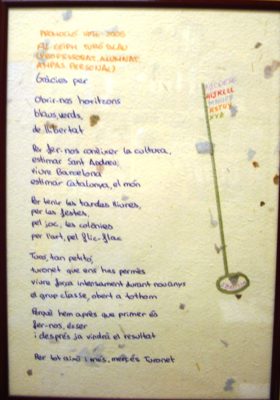 PROMOCIÓ 1996-2005
AL CEIPM TURÓ BLAU
(PROFESSORAT, ALUMNAT,
AMPAS, PERSONAL)
Gràcies per
obrir-nos horitzons
blaus, verds,
de llibertat
Per fer-nos conèixer la cultura,
estimar Sant Andreu,
viure Barcelona
estimar Catalunya, el món
Per tenir les tardes lliures,
per les festes,
pel joc, les colònies
per l'art, pel flic-flac
Turó, tan petitó,
turonet que ens has permès
viure força intensament durant nou anys
el grup classe, obert a tothom
Perquè hem après que primer és
fer-nos, ésser
i després ja vindrà el resultat
Per tot això i més, mercès Turonet
HIJKLL